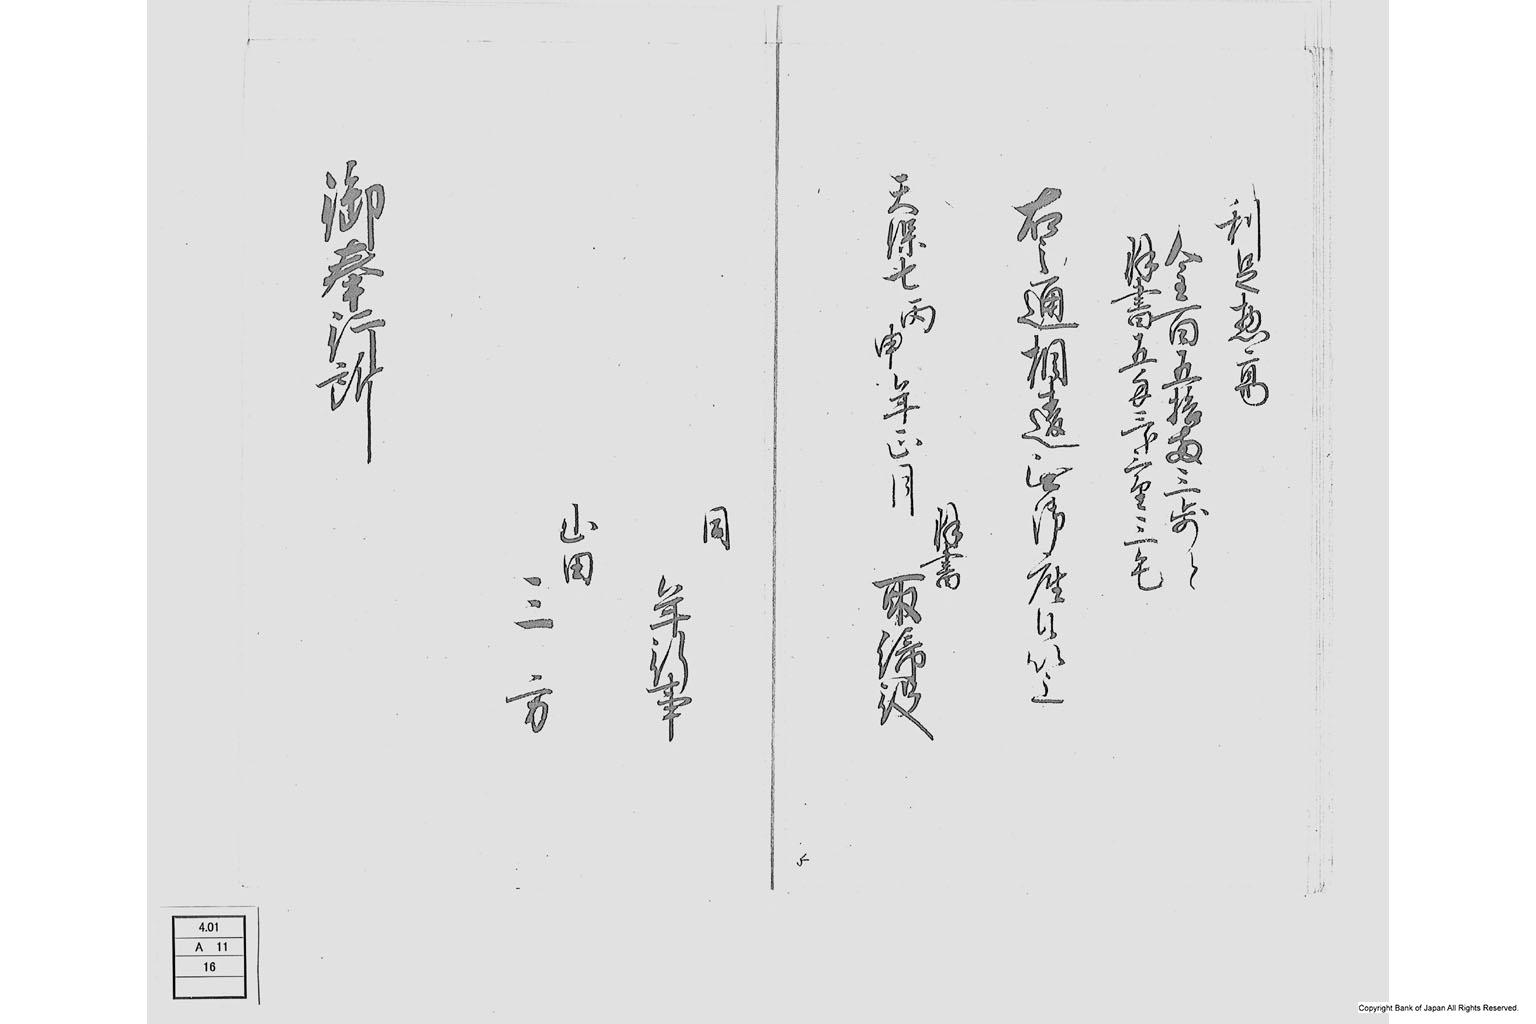 利足惣高
金百五拾両三歩と
羽書五匁三分
右之通相違無御座候以上
天保七丙申年正月
羽書
取締役
同
年行事
山田
三方
御奉行所
5
4.01
A 11
16
Copyright Bank of Japan All Rights Reserved.